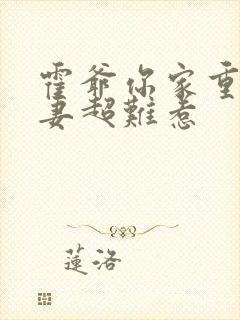 霍爺你家重
妻超難惹
蓮洛